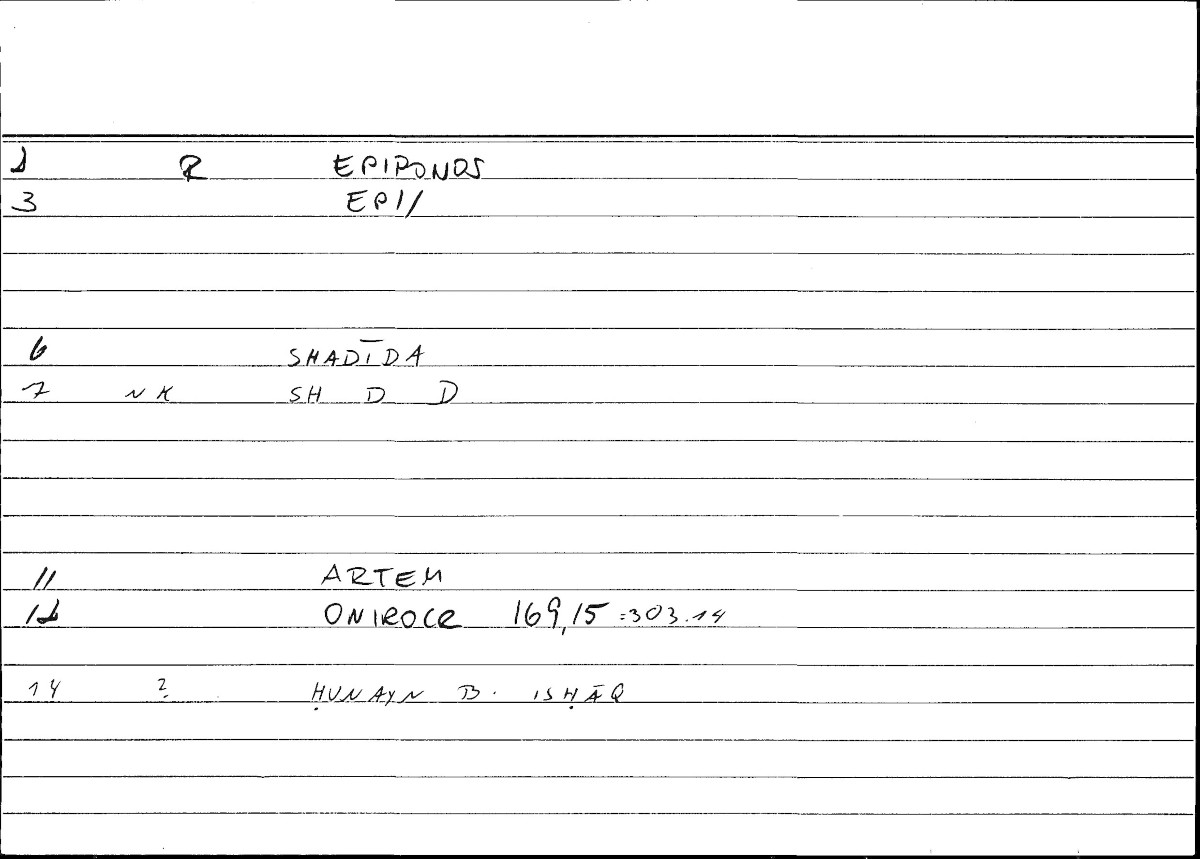 2 R EPIPONOS
3 EPI/
6 SHADĪDA
7 NK SH D D
11 ARTEM
12 ONIROCR 169,15 =303.14
14 2 ḤUNAYN B. ISḤĀQ